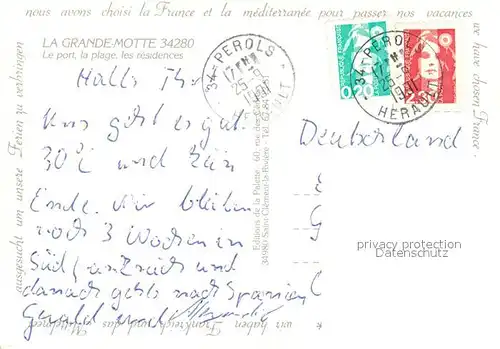 nous avons choisi la France et la méditerranée pour passer nos vacances
we have chosen France
LA GRANDE-MOTTE 34280
Le port, la plage, les résidences
Hallo Ihr
Uns geht es gut.
30°C und kein
Ende. Wir bleiben
noch 3 Wochen in
Südfrankreich und
danach gehts nach Spanien
Gerald und
ausgesucht um unsere Ferien zu verbringen
wir haben Frankreich und das Mittelmeer
Editions de la Palette - 60, rue des
34980 Saint-Clément-la-Rivière - Tél. 67
34 - PEROLS
17 H
25-9
1991
HERAULT
0,20
34 - PEROLS
17 H
25-9
1991
HERAULT
Deutschland
privacy protection
Datenschutz